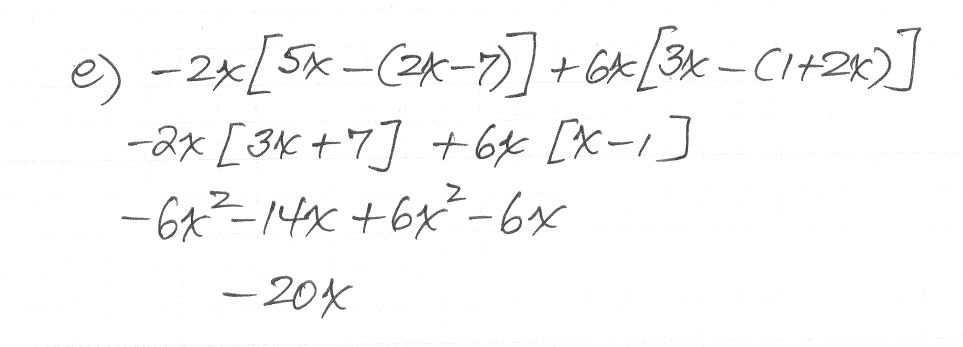 e) -2x[5x-(2x-7)]+6x[3x-(1+2x)]
-2x[3x+7] +6x[x-1]
-6x²-14x+6x²-6x
-20x